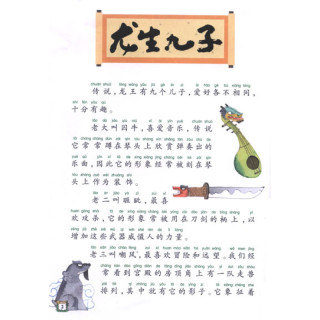 龙生九子
传说,龙王有九个儿子,爱好各不相同,
十分有趣。
老大叫囚牛,喜爱音乐,传说
它常常蹲在琴头上欣赏弹奏出的
乐曲,因此它的形象经常被刻在琴
头上作为装饰。
老二叫睚眦,最喜
欢攻杀,它的形象常被用在刀剑的柄上,以
增加这些武器威慑人的力量。
老三叫嘲风,最喜欢冒险和远望。我们经
常看到宫殿的房顶角上有一队走兽
排列,其中就有它的影子,它象征着